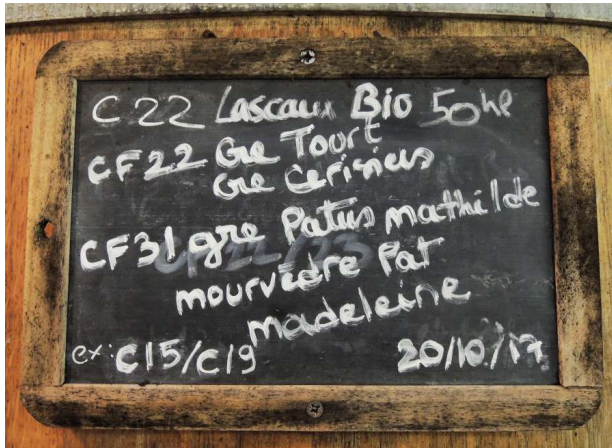 C22 Lascaux Bio 50hl
CF22 Gre Tourt
Gre Cerisiers
CF31 gre Patus mathilde
mourvèdre Pat
madeleine
ex: C15/C19 20/10/17